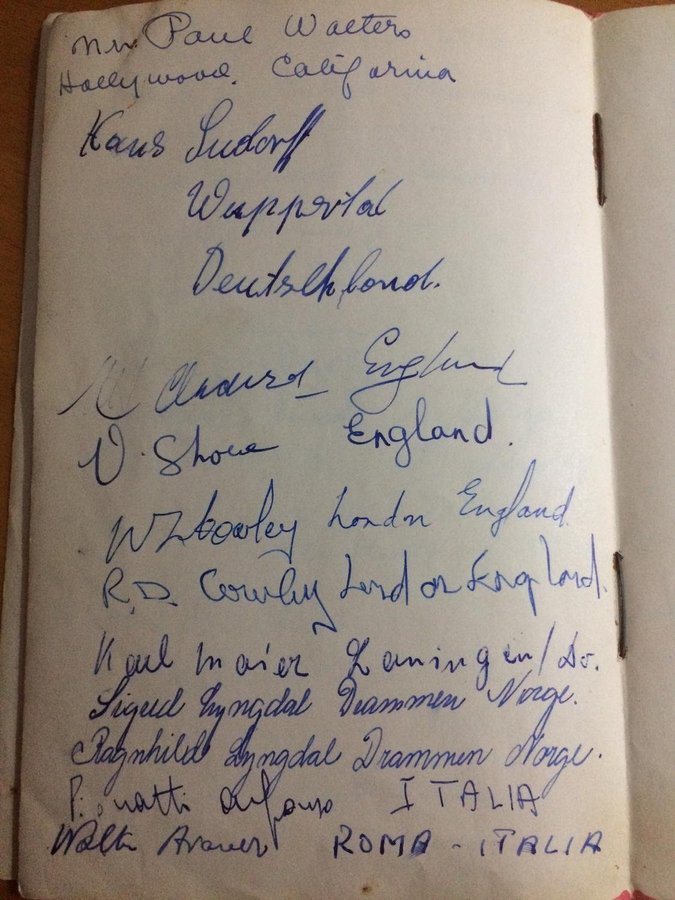 Paul Walters
Hollywood. California
Hans Ludorff
Wuppertal
Deutschland.
England
V. Shove England.
London England
R.D. Cowley London England.
Karl Maier Lauingen/Do.
Sigurd Lyngdal Drammen Norge.
Ragnhild Lyngdal Drammen Norge.
ITALIA
ROMA - ITALIA